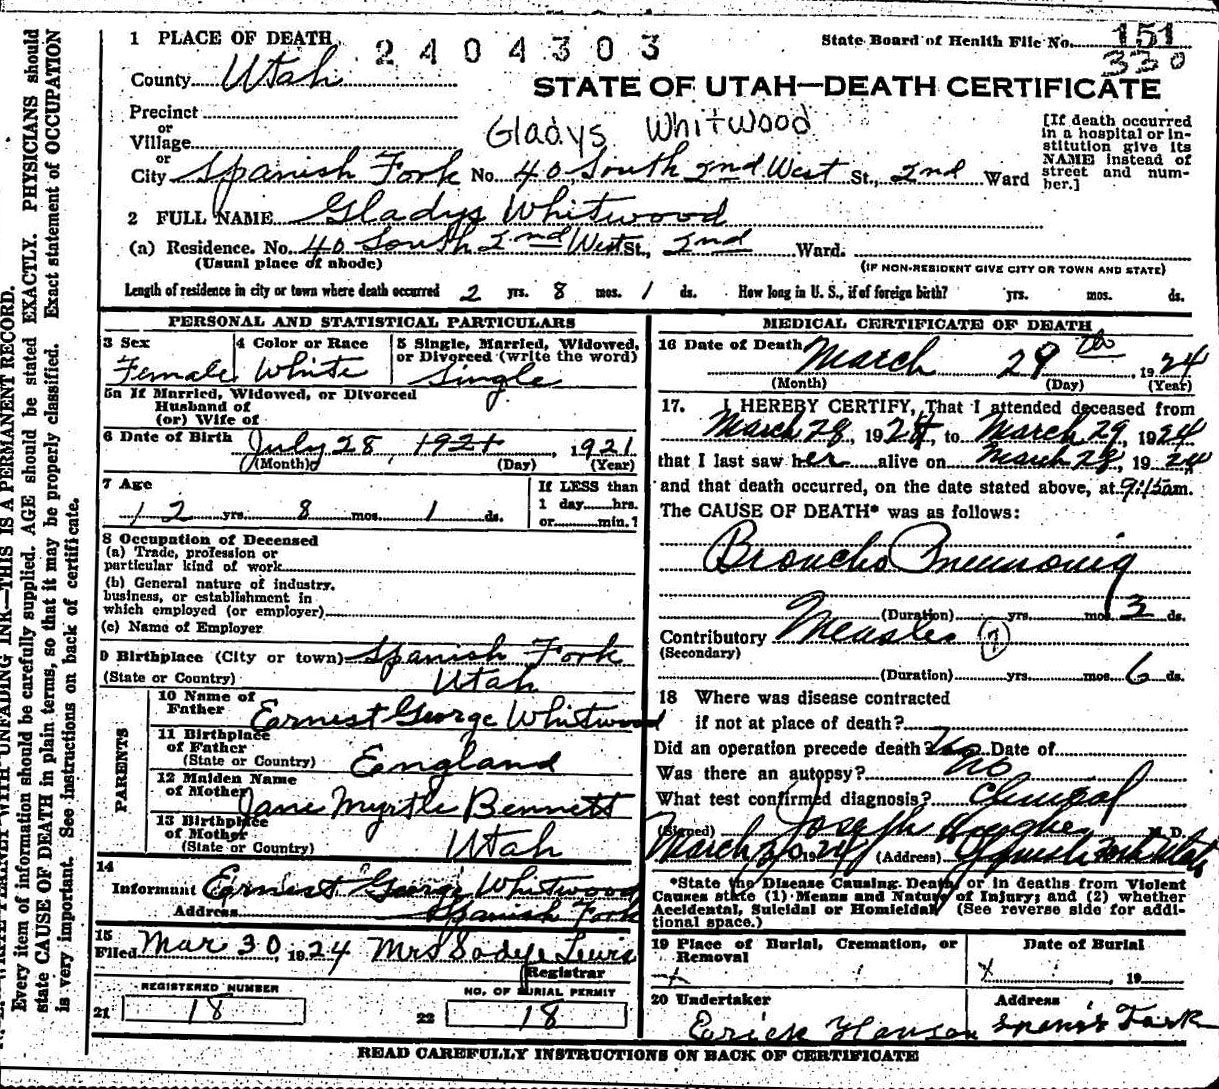 1 PLACE OF DEATH
2404303
State Board of Health File No. 151
330
County Utah
STATE OF UTAH—DEATH CERTIFICATE
Precinct
or
Village
Gladys Whitwood
[If death occurred in a hospital or institution give its NAME instead of street and number.]
or
City Spanish Fork No. 40 South 2nd West St., 2nd Ward
2 FULL NAME Gladys Whitwood
(a) Residence. No. 40 South 2nd West St., 2nd Ward.
(Usual place of abode) (IF NON-RESIDENT GIVE CITY OR TOWN AND STATE)
Length of residence in city or town where death occurred 2 yrs. 8 mos. 1 ds. How long in U. S., if of foreign birth? yrs. mos. ds.
PERSONAL AND STATISTICAL PARTICULARS
3 Sex
Female
4 Color or Race
White
5 Single, Married, Widowed, or Divorced (write the word)
Single
5a If Married, Widowed, or Divorced
Husband of
(or) Wife of
6 Date of Birth July 28, 1921, 1921
(Month) (Day) (Year)
7 Age
2 yrs. 8 mos. 1 ds.
If LESS than
1 day hrs.
or min.?
8 Occupation of Deceased
(a) Trade, profession or
particular kind of work
(b) General nature of industry,
business, or establishment in
which employed (or employer)
(c) Name of Employer
9 Birthplace (City or town) Spanish Fork
(State or Country) Utah
PARENTS
10 Name of
Father Earnest George Whitwood
11 Birthplace
of Father
(State or Country) England
12 Maiden Name
of Mother Jane Myrtle Bennett
13 Birthplace
of Mother
(State or Country) Utah
14
Informant Earnest George Whitwood
Address Spanish Fork
15
Filed Mar 30 1924 Mrs Sadye Lewis
Registrar
REGISTERED NUMBER
21 18
NO. OF BURIAL PERMIT
22 18
MEDICAL CERTIFICATE OF DEATH
16 Date of Death March 29th, 1924
(Month) (Day) (Year)
17. I HEREBY CERTIFY, That I attended deceased from
March 28, 1924, to March 29, 1924
that I last saw her alive on March 28, 1924
and that death occurred, on the date stated above, at 9:15am.
The CAUSE OF DEATH* was as follows:
Broncho Pneumonia
(Duration) yrs. mos. 3 ds.
Contributory Measles (7)
(Secondary)
(Duration) yrs. mos. 6 ds.
18 Where was disease contracted
if not at place of death?
Did an operation precede death? No Date of
Was there an autopsy? no
What test confirmed diagnosis? Clinical
(Signed) Joseph Hughes M.D.
March 30 1924 (Address) Spanish Fork Utah
*State the Disease Causing Death, or in deaths from Violent
Causes state (1) Means and Nature of Injury; and (2) whether
Accidental, Suicidal or Homicidal. (See reverse side for addi-
tional space.)
19 Place of Burial, Cremation, or
Removal
Date of Burial
x , 19
20 Undertaker
Erick Hansen
Address
Spanish Fork
READ CAREFULLY INSTRUCTIONS ON BACK OF CERTIFICATE
WRITE PLAINLY WITH UNFADING INK—THIS IS A PERMANENT RECORD.
Every item of information should be carefully supplied. AGE should be stated EXACTLY. PHYSICIANS should
state CAUSE OF DEATH in plain terms, so that it may be properly classified. Exact statement of OCCUPATION
is very important. See instructions on back of certificate.